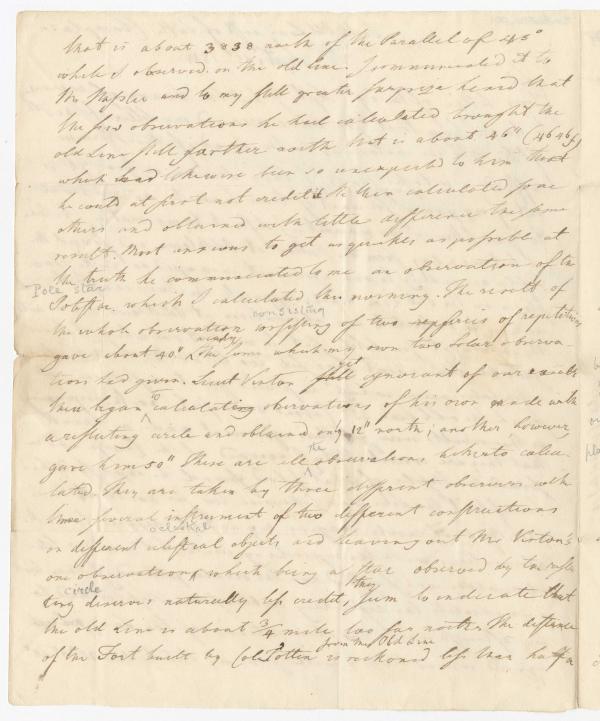 that is about 3838 north of the Parallel of 45°
which I observed on the old line. I communicated it to
Mr Hassler and to my still greater surprise heard that
the few observations he had calculated brought the
old Line still farther north that is about 46" (4646 f)
which had likewise been so unexpected to him that
he could at first not credit it. He then calculated some
others and obtained with little difference the same
result. Most anxious to get as quickes as possible at
the truth he communicated to me an observation of the
Pole star
Polstar, which I calculated this morning. The result of
consisting
the whole observation consisting of two series of repetitions
nearly
gave about 40" the same which my own two Solar observa-
yet
tions had given. Lieut Vinton still ignorant of our results
to
then began calculating observations of his own made with
a reflecting circle and obtained only 12" north; another, however,
the
gave him 50" These are all observations hitherto calcu-
lated. They are taken by three different observers with
three several instrument of two different constructions
celestial
on different celestial objects and leaving out Mr Vinton's
one observation, which being a star observed by the reflec
circle
they
ting deserves naturally less credit, seem to indicate that
the old Line is about 3/4 mile too far north. The distance
from the Old Line
of the Fort built by Col. Totten is reckoned less than half a